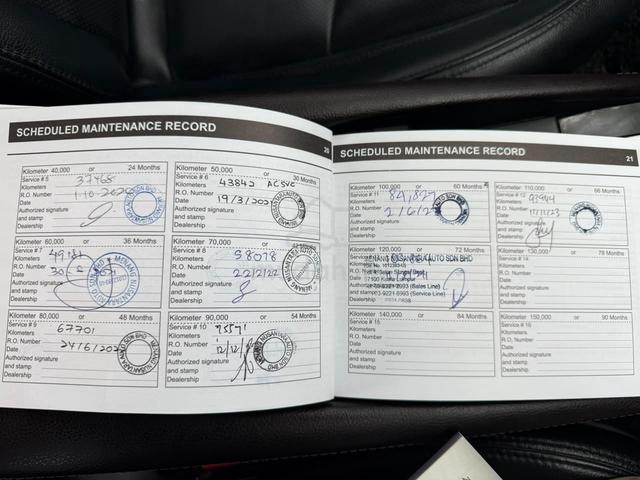 SCHEDULED MAINTENANCE RECORD
20
Kilometer 40,000 or 24 Months
Service # 5
Kilometers 37465
R.O. Number
Date
Authorized signature
and stamp
Dealership
Kilometer 50,000 or 30 Months
Service # 6
Kilometers 43842 AC SVC
R.O. Number
Date 19/3/202
Authorized signature
and stamp
Dealership
Kilometer 60,000 or 36 Months
Service # 7
Kilometers
R.O. Number
Date
Authorized signature
and stamp
Dealership
Kilometer 70,000 or 42 Months
Service # 8
Kilometers 58078
R.O. Number
Date 22/2/22
Authorized signature
and stamp
Dealership
Kilometer 80,000 or 48 Months
Service # 9
Kilometers 67701
R.O. Number
Date 24/6/202
Authorized signature
and stamp
Dealership
Kilometer 90,000 or 54 Months
Service # 10
Kilometers 75571
R.O. Number
Date 12/12/
Authorized signature
and stamp
Dealership
SCHEDULED MAINTENANCE RECORD
21
Kilometer 100,000 or 60 Months
Service # 11
Kilometers 84,827
R.O. Number
Date 2/6/23
Authorized signature
and stamp
Dealership
Kilometer 110,000 or 66 Months
Service # 12
Kilometers
R.O. Number
Date
Authorized signature
and stamp
Dealership
Kilometer 120,000 or 72 Months
MENANG NUSANTARA AUTO SDN BHD
57100 Kuala Lumpur
(Sales Line)
03-9221 6993 (Service Line)
Dealership
Kilometer 130,000 or 78 Months
Service # 14
Kilometers
R.O. Number
Date
Authorized signature
and stamp
Dealership
Kilometer 140,000 or 84 Months
Service # 15
Kilometers
R.O. Number
Date
Authorized signature
and stamp
Dealership
Kilometer 150,000 or 90 Months
Service # 16
Kilometers
R.O. Number
Date
Authorized signature
and stamp
Dealership